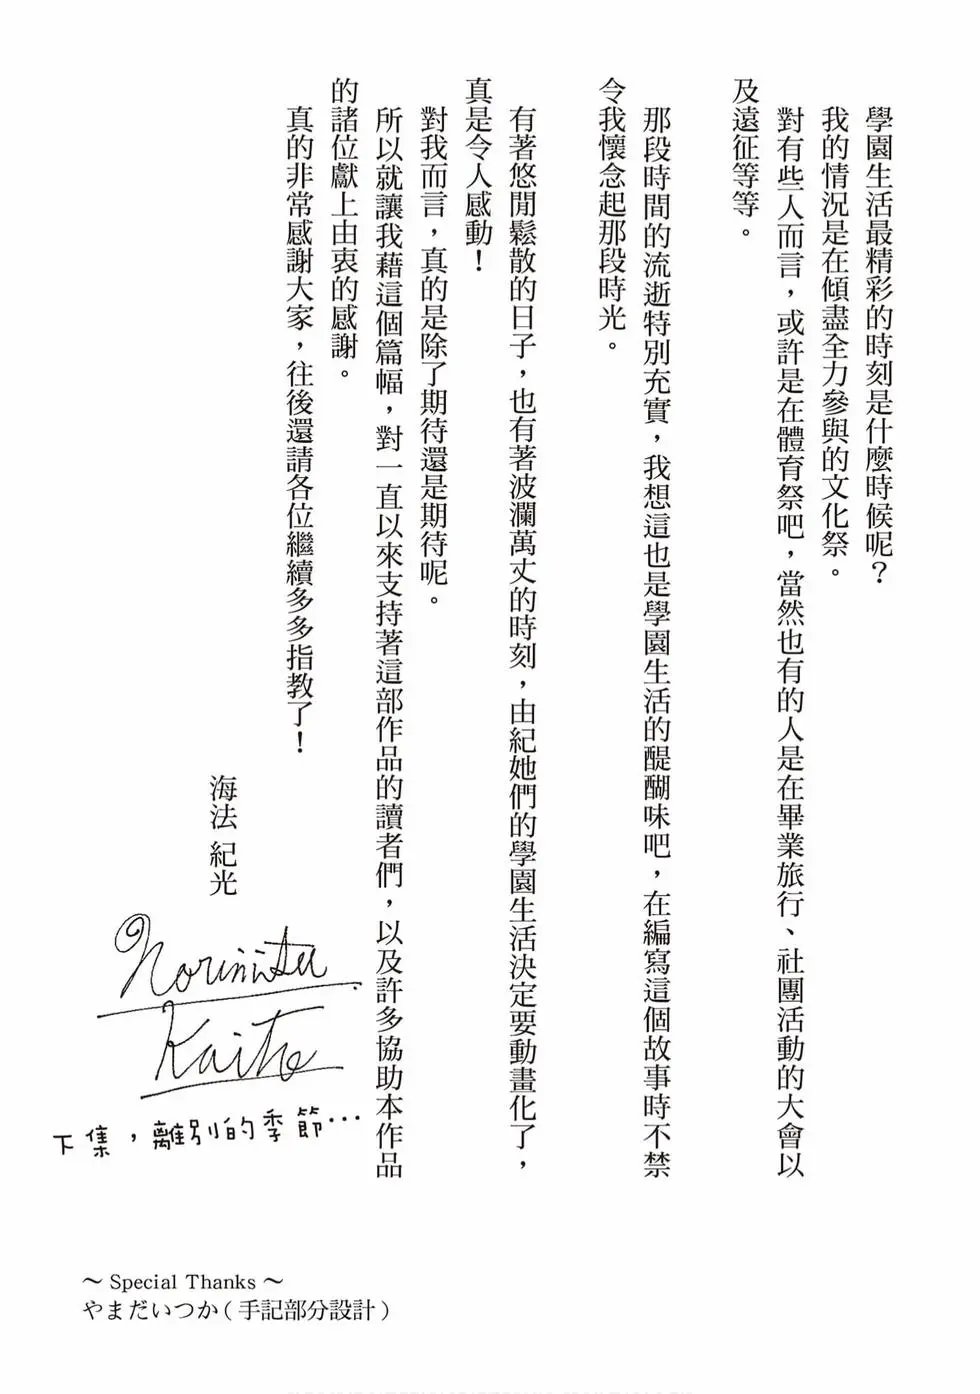 學園生活最精彩的時刻是什麼時候呢？
我的情況是在傾盡全力參與的文化祭。
對有些人而言，或許是在體育祭吧，當然也有的人是在畢業旅行、社團活動的大會以
及遠征等等。
那段時間的流逝特別充實，我想這也是學園生活的醍醐味吧，在編寫這個故事時不禁
令我懷念起那段時光。
有著悠閒鬆散的日子，也有著波瀾萬丈的時刻，由紀她們的學園生活決定要動畫化了，
真是令人感動！
對我而言，真的是除了期待還是期待呢。
所以就讓我藉這個篇幅，對一直以來支持著這部作品的讀者們，以及許多協助本作品
的諸位獻上由衷的感謝。
真的非常感謝大家，往後還請各位繼續多多指教了！
海法 紀光
Norimitsu
Kaiho
下集，離別的季節…
～Special Thanks～
やまだいつか（手記部分設計）